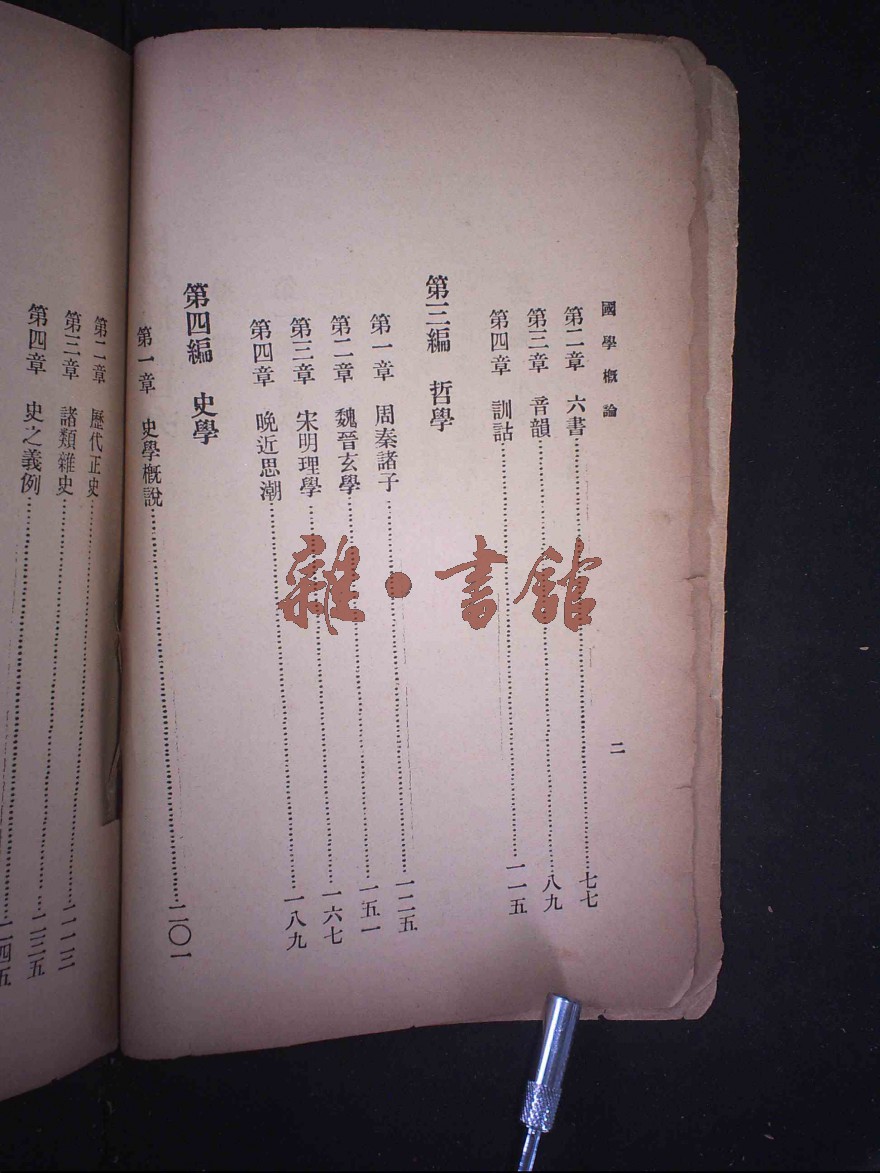 國學概論
二
第二章 六書……七七
第三章 音韻……八九
第四章 訓詁……一一五
第三編 哲學
第一章 周秦諸子……一二五
第二章 魏晉玄學……一五一
第三章 宋明理學……一六七
第四章 晚近思潮……一八九
第四編 史學
第一章 史學概說……二〇一
第二章 歷代正史……二一三
第三章 諸類雜史……二三五
第四章 史之義例……二四五
雜·書館